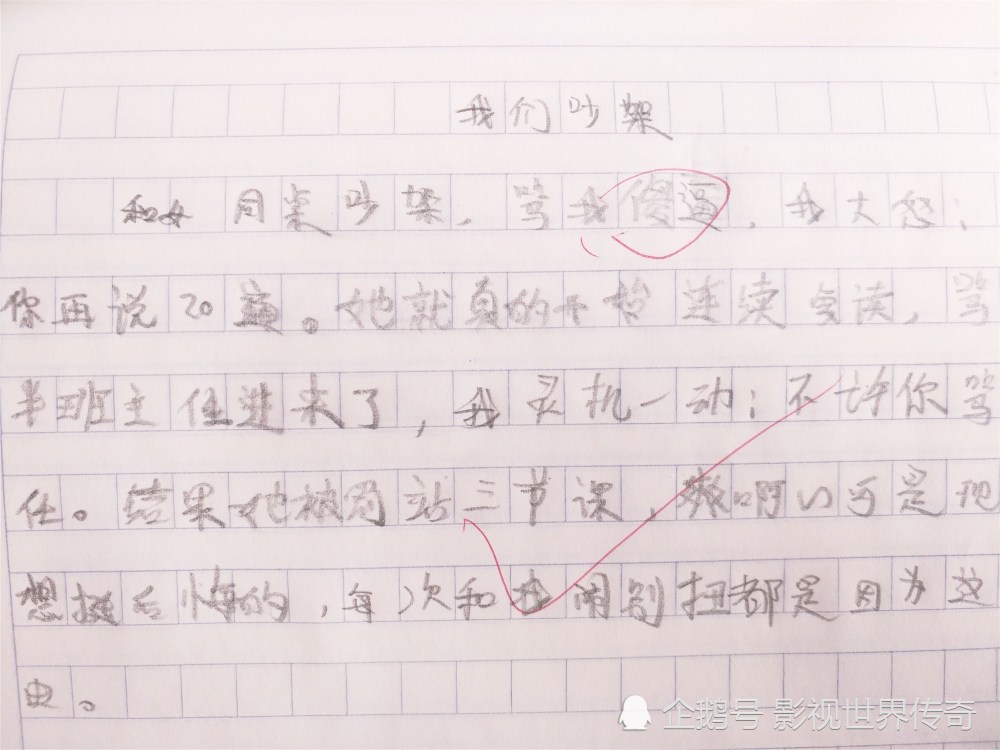 我们吵架
和女同桌吵架，骂我傻逼，我大怒：
你再说20遍。她就真的开始连续复读，骂
半班主任进来了，我灵机一动：不许你骂
任。结果她被罚站三节课，爽啊！可是现
想挺后悔的，每次和她闹别扭都是因为这
由。
企鹅号 影视世界传奇